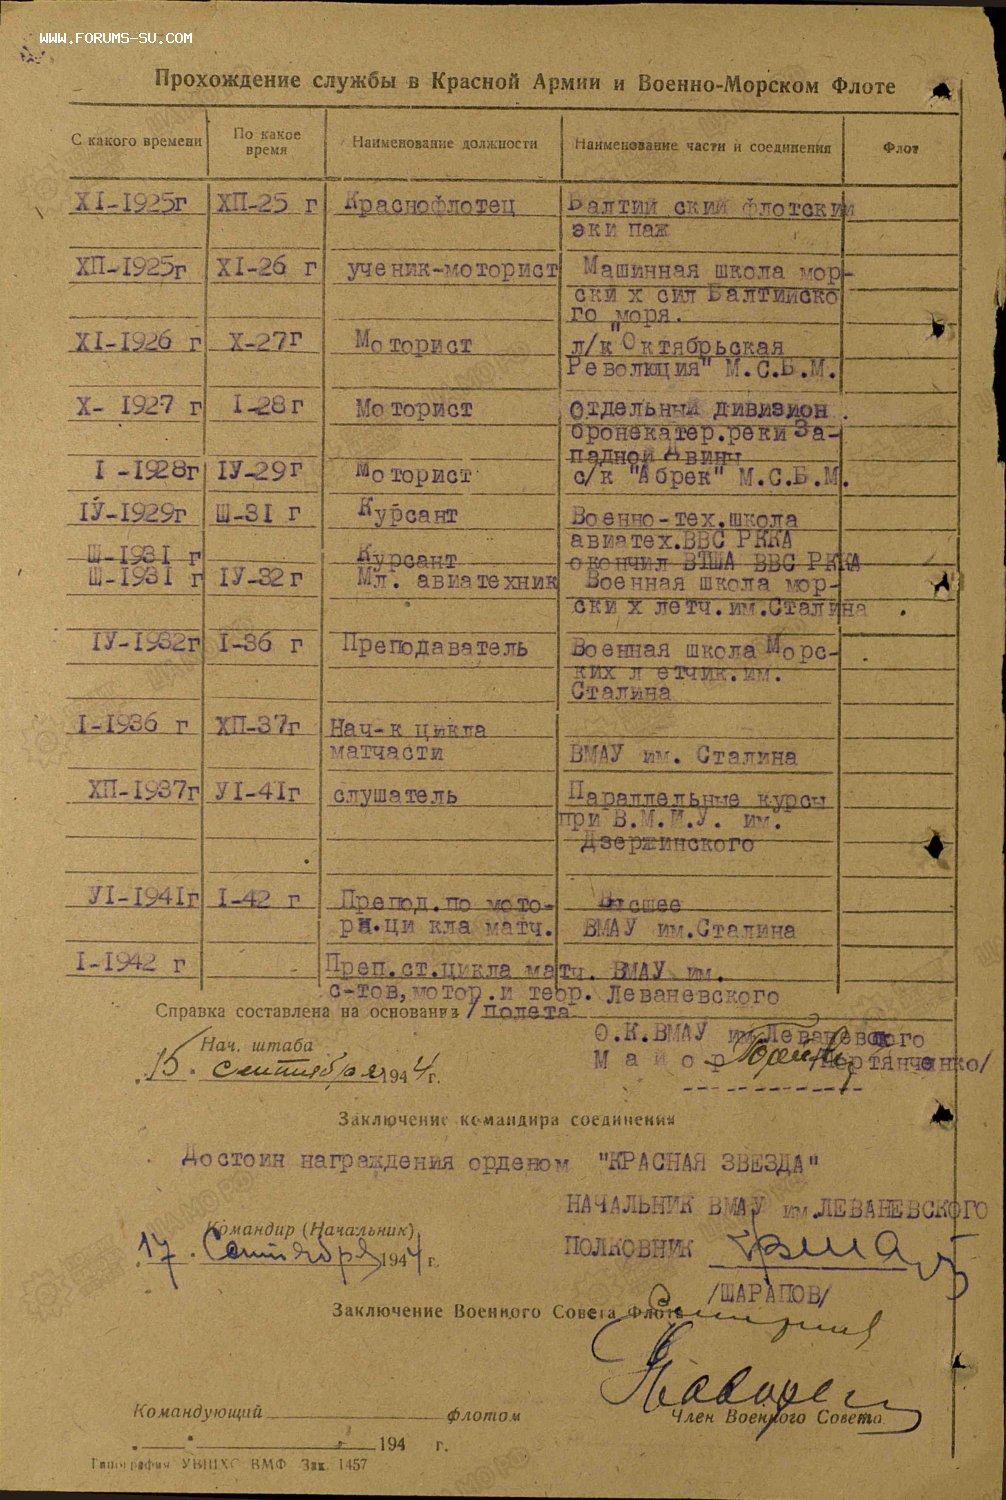 WWW.FORUMS-SU.COM
Прохождение службы в Красной Армии и Военно-Морском Флоте
С какого времени По какое время Наименование должности Наименование части и соединения Флот
XI-1925г ХП-25 г Краснофлотец Балтий ский флотский
эки паж
ХП-1925г XI-26 г ученик-моторист Машинная школа мор-
ски х сил Балтийско
го моря.
XI-1926 г X-27г Моторист л/к "Октябрьская
Революция" М.С.Б.М.
X- 1927 г I-28г Моторист Отдельный дивизион
бронекатер.реки За-
падной Двины
I -1928г IУ-29г Моторист с/к "Абрек" М.С.Б.М.
IУ-1929г Ш-31 г Курсант Военно-тех.школа
авиатех.ВВС РККА
Ш-1931 г Курсант окончил ВТША ВВС РККА
Ш-1931 г IУ-32г Мл. авиатехник Военная школа мор-
ски х летч.им.Сталина
IУ-1932г I-36 г Преподаватель Военная школа Морс-
ких л етчик.им.
Сталина
I-1936 г ХП-37г Нач-к цикла
матчасти ВМАУ им. Сталина
ХП-1937г УI-41г слушатель Параллельные курсы
при В.М.И.У. им.
Дзержинского
УI-1941г I-42 г Препод.по мото- Высшее
рн.ци кла матч. ВМАУ им.Сталина
I-1942 г Преп.ст.цикла матч. ВМАУ им.
с-тов,мотор.и теор. Леваневского
Справка составлена на основании /полета
О.К.ВМАУ им.Леваневского
Нач. штаба
М а й о р
15. сентября 1944 г.
Заключение командира соединения
Достоин награждения орденом "КРАСНАЯ ЗВЕЗДА"
НАЧАЛЬНИК ВМАУ им.ЛЕВАНЕВСКОГО
Командир (Начальник)
ПОЛКОВНИК
17. Сентября 1944 г.
/ШАРАПОВ/
Заключение Военного Совета Флота
Командующий флотом
Член Военного Совета
194 г.
Типография УВППХС ВМФ Зак. 1457